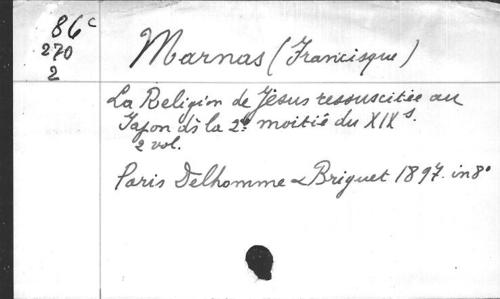 86c
270
2
Marnas (Francisque)
La Religion de Jésus ressuscitée au
Japon ds la 2e moitié du XIXs.
2 vol.
Paris Delhomme & Briguet 1897. in 8°